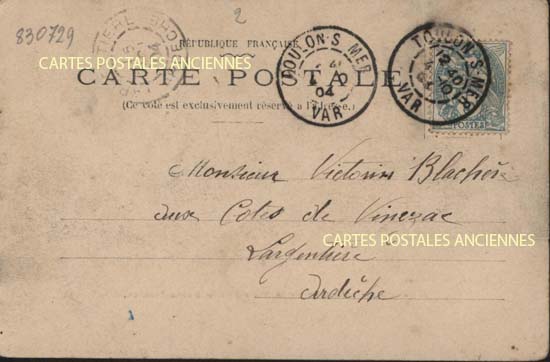 830729
2
RÉPUBLIQUE FRANÇAISE
CARTES POSTALES ANCIENNES
CARTE POSTALE
(Ce côté est exclusivement réservé à l'adresse.)
TOULON-S-MER
04
VAR
TOULON-S-MER
VAR
POSTES
Monsieur Victorin Blachère
aux Cotes de Vinezac
CARTES POSTALES ANCIENNES
Largentière
Ardèche